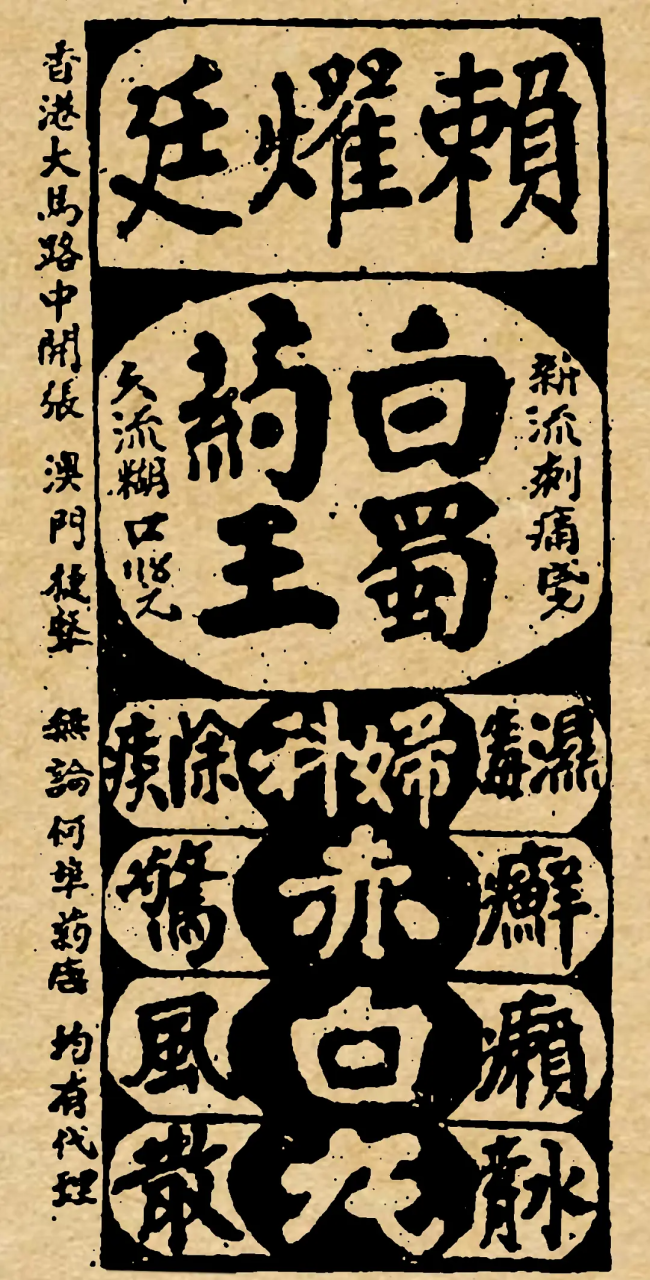 賴燿廷
新流刺痛
白蜀
葯王
久流糊口
濕毒癬癩
婦科赤白丸
除痰驚風散
香港大馬路中開張 澳門 無論何埠葯 均有代理